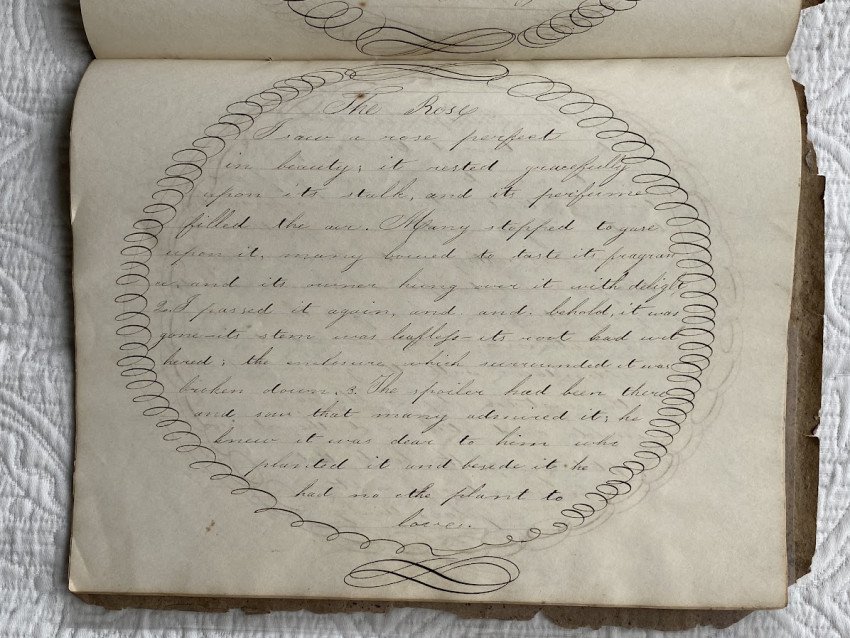 The Rose
I saw a rose perfect
in beauty; it rested gracefully
upon its stalk, and its perfume
filled the air. Many stopped to gase
upon it, many bowed to taste its fragran
ce, and its owner hung over it with delight
2. I passed it again, and and behold, it was
gone—its stem was leafless—its root had wit
hered; the enclosure which surrounded it was
broken down. 3. The spoiler had been there
and saw that many admired it; he
knew it was dear to him who
planted it and beside it he
had no othe plant to
love.